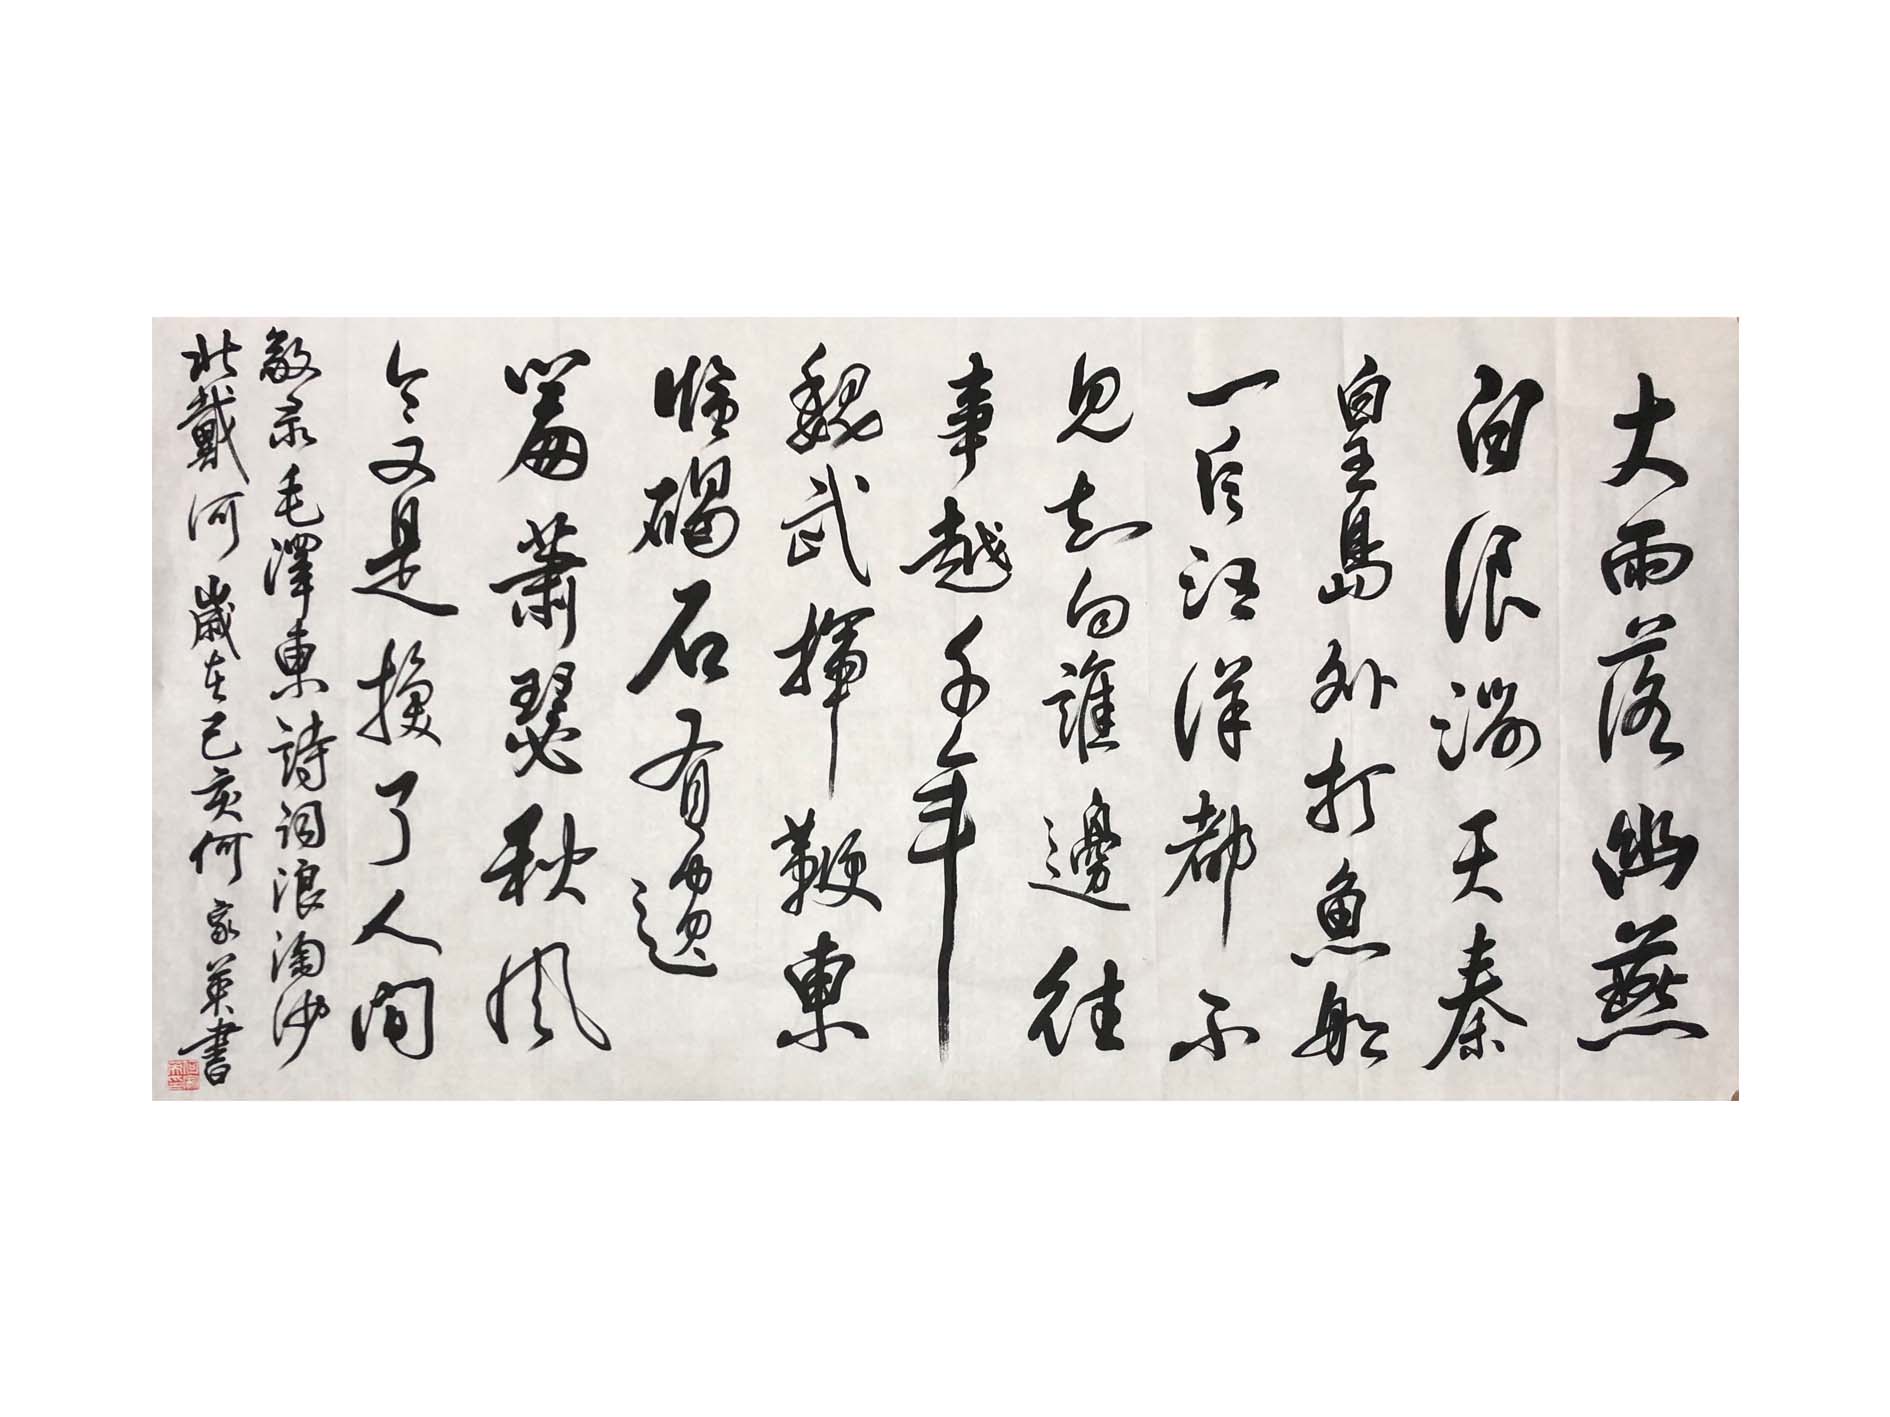 大雨落幽燕
白浪滔天秦
皇島外打魚船
一片汪洋都不
見知向誰邊往
事越千年
魏武揮鞭東
臨碣石有遺
篇蕭瑟秋風
今又是換了人間
敬录毛澤東詩詞浪淘沙
北戴河歲在己亥何家英書